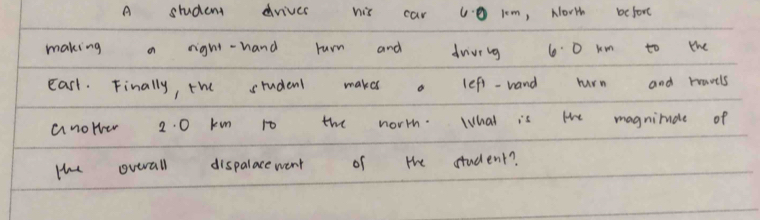 A student drives his car 6.0 km, North before
making a right-hand turn and driving 6.0 km to the
East. Finally, the student makes a left-hand turn and travels
another 2.0 km to the north. What is the magnitude of
the overall dispalacement of the student?